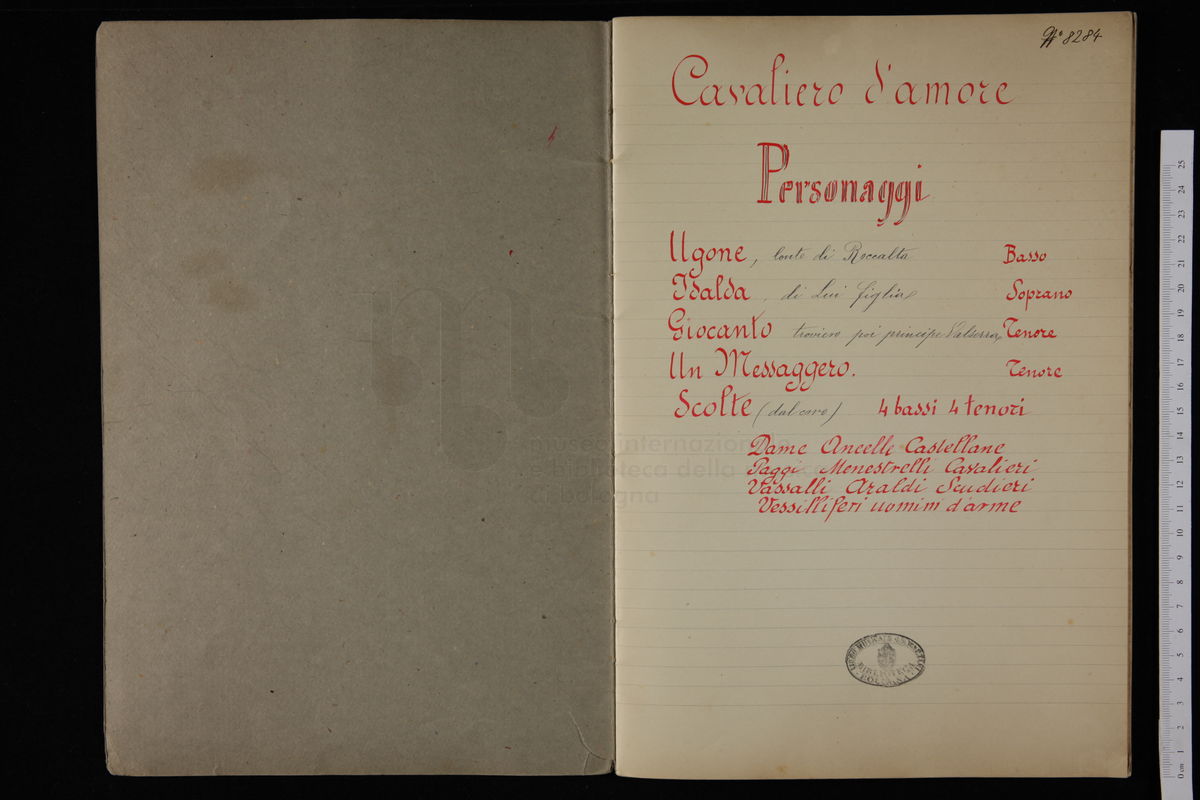 N° 8284
Cavaliero d'amore
Personaggi
Ugone, Conte di Roccalta Basso
Isalda, di Lui figlia Soprano
Giocanto troviero poi principe Valserra Tenore
Un Messaggero. Tenore
Scolte (dal coro) 4 bassi 4 tenori
Dame Ancelle Castellane
Paggi Menestrelli Cavalieri
Vassalli Araldi Scudieri
Vessilliferi uomini d'arme
museo internazionale
e biblioteca della musica
di bologna
LICEO MUSICALE
BIBLIOTECA
BOLOGNA
0 cm 1 2 3 4 5 6 7 8 9 10 11 12 13 14 15 16 17 18 19 20 21 22 23 24 25